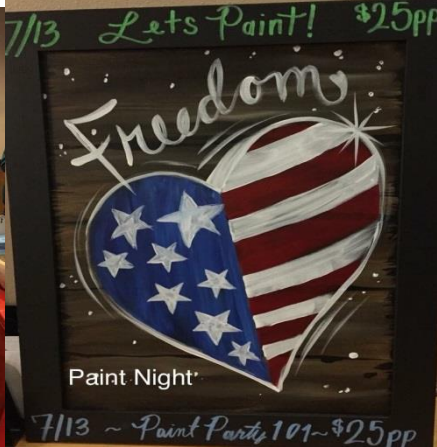 7/13 Lets Paint! $25pp
Freedom
Paint Night
7/13 ~ Paint Party 101 ~ $25pp